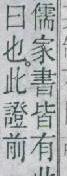 儒家書皆有
曰也。此證前